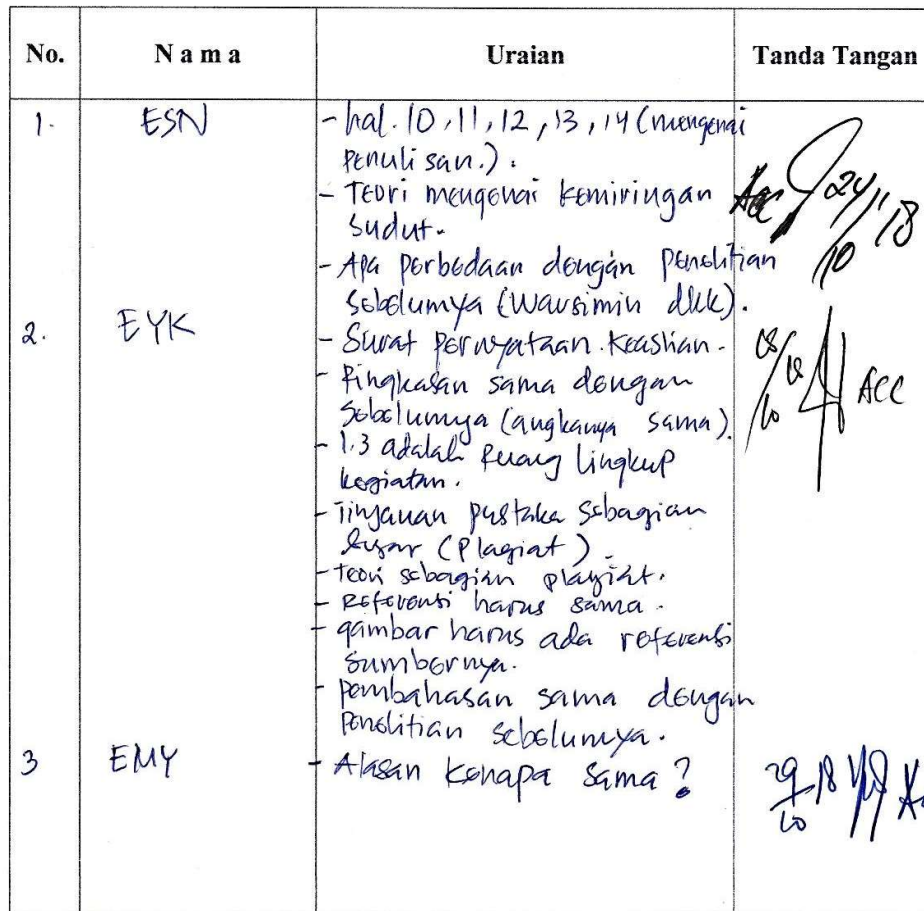 No. N a m a Uraian Tanda Tangan
1. ESN - hal. 10, 11, 12, 13, 14 (mengenai
penulisan.).
- Teori mengenai kemiringan
sudut.
Acc 24/10 '18
- Apa perbedaan dengan penelitian
sebelumya (Warsimin dkk).
2. EYK - Surat pernyataan keaslian.
- Ringkasan sama dengan
sebelumya (angkanya sama).
ACC
- 1.3 adalah Ruang lingkup
kegiatan.
- Tinjauan pustaka sebagian
besar (Plagiat).
- teori sebagian plagiat.
- Referensi harus sama.
- gambar harus ada referensi
sumbernya.
- pembahasan sama dengan
penelitian sebelumya.
3 EMY - Alasan kenapa sama?
29/10 18